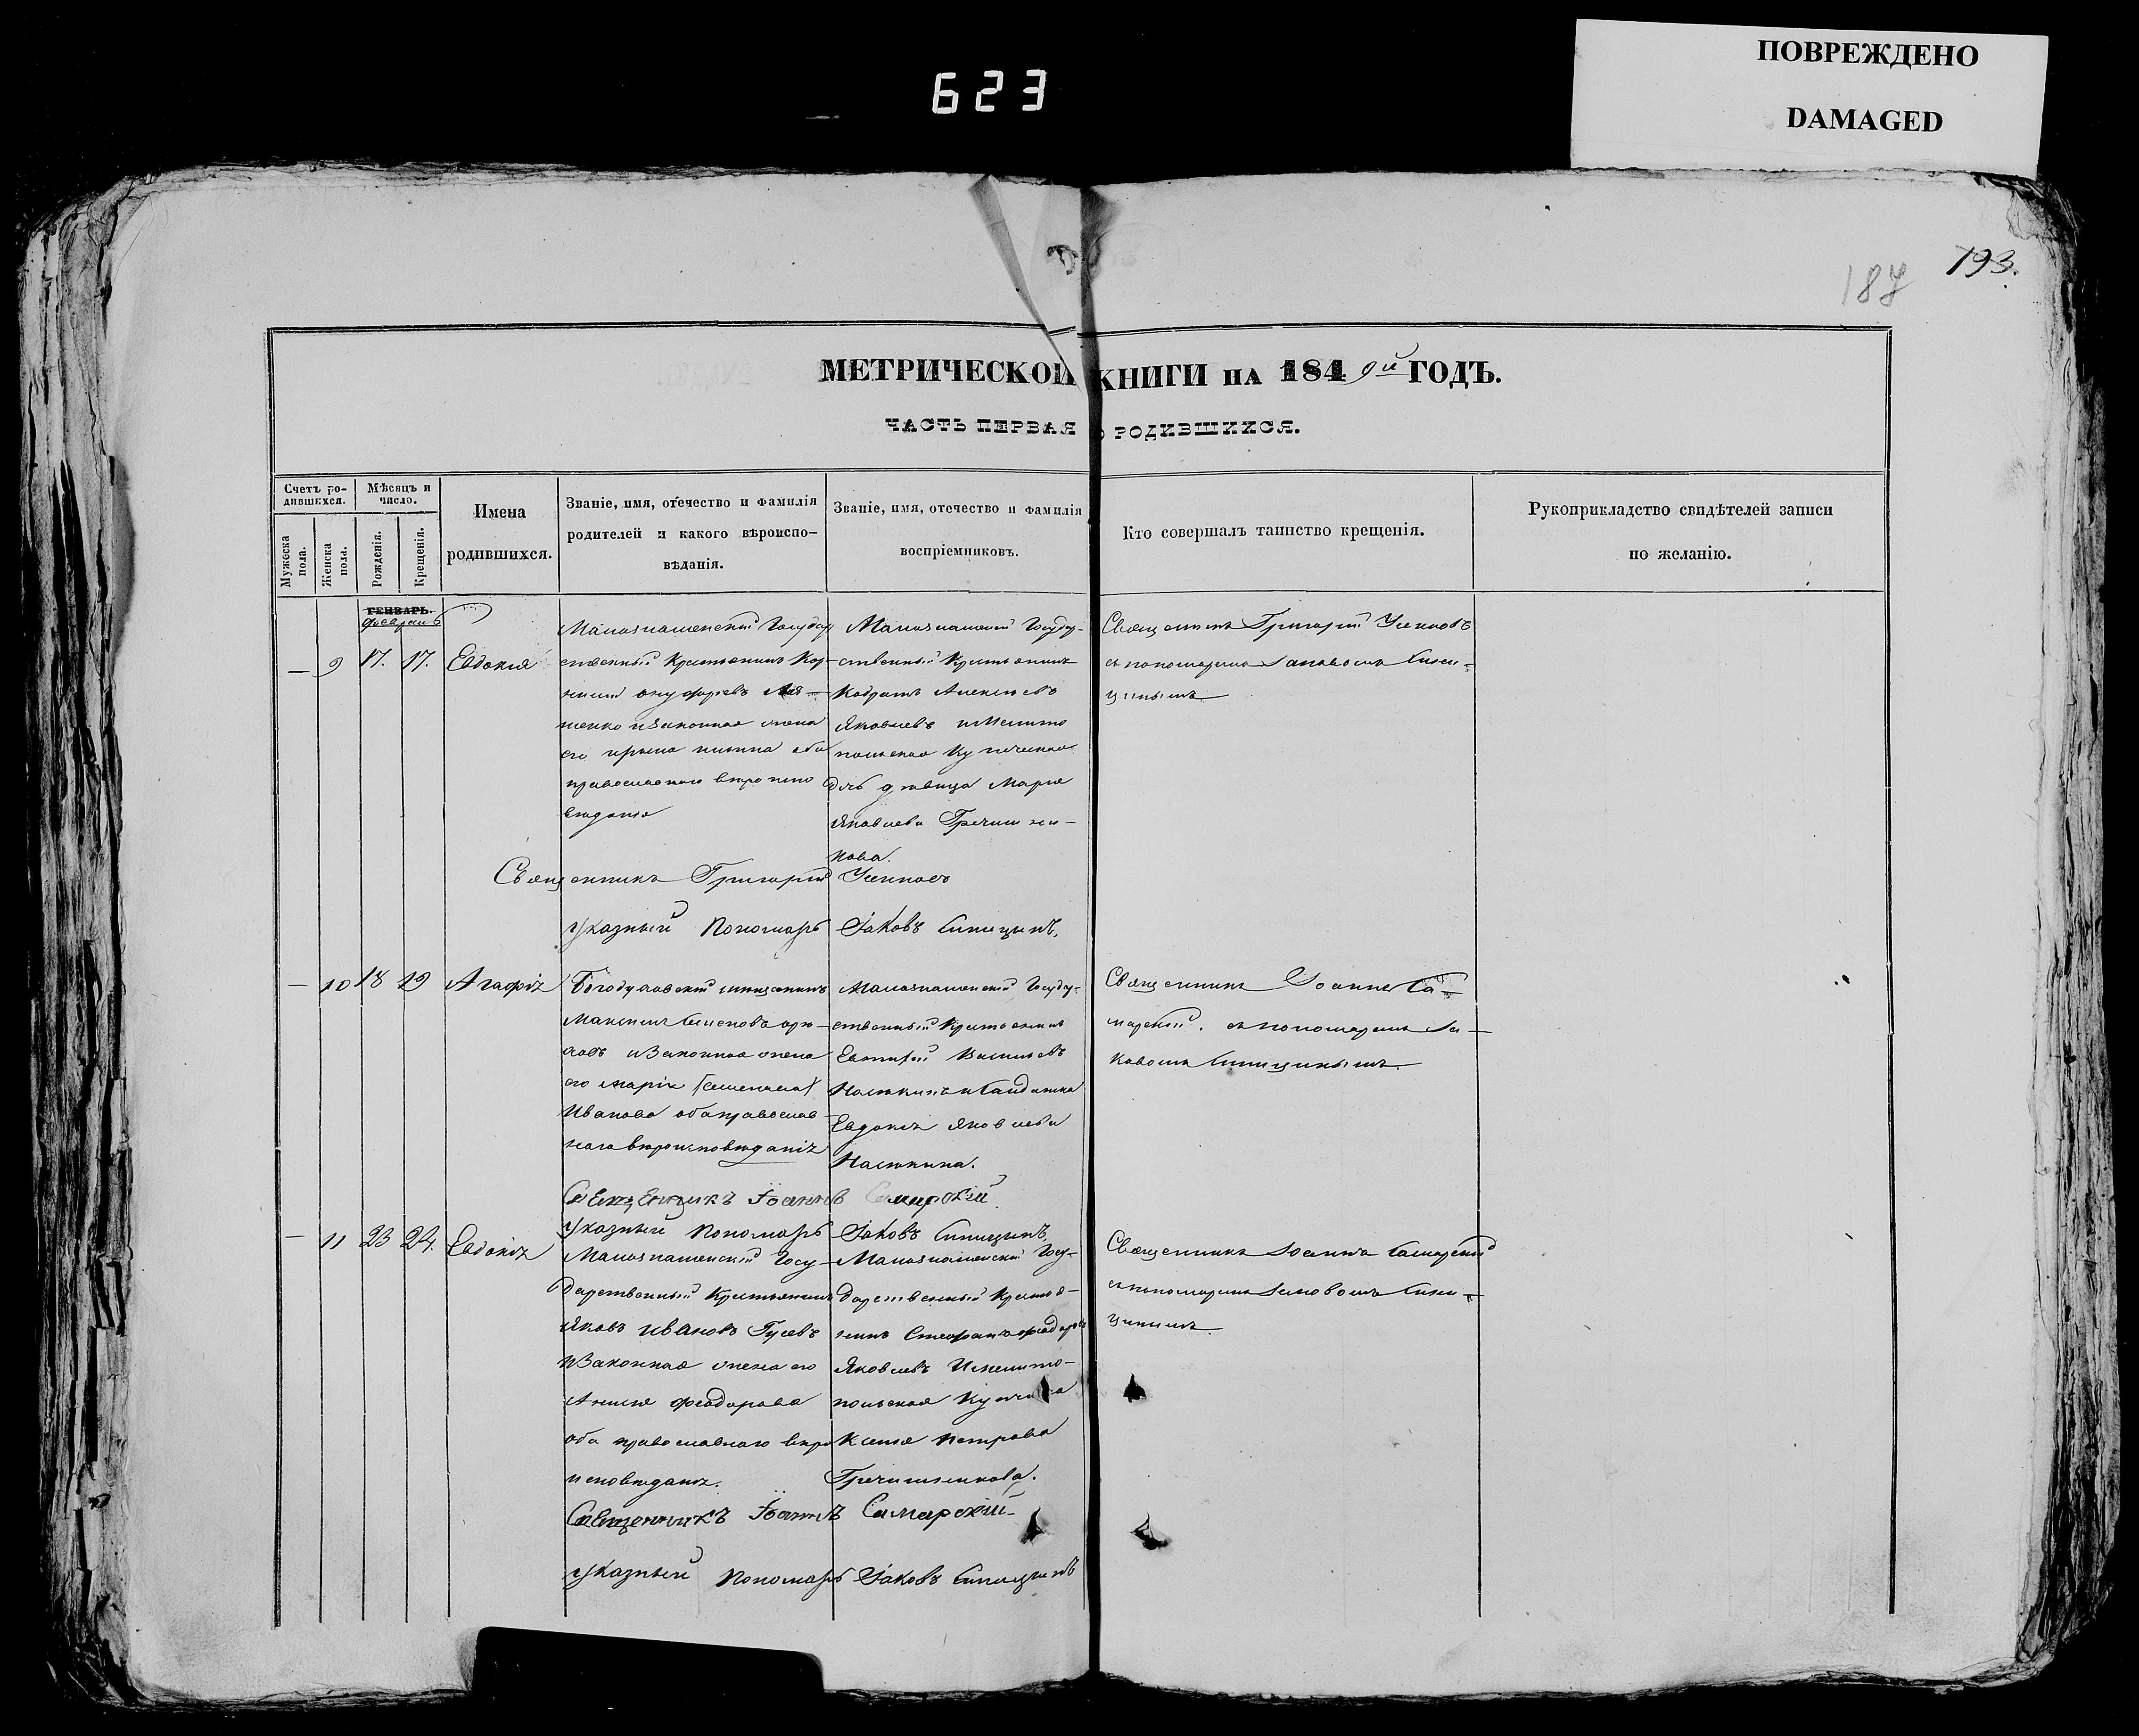 623
ПОВРЕЖДЕНО
DAMAGED
187 193.
МЕТРИЧЕСКОЙ КНИГИ НА 184 9й ГОДЪ.
ЧАСТЬ ПЕРВАЯ О РОДИВШИХСЯ.
Счетъ ро-
дившихся.
Мужеска пола.
Женска пола.
Мѣсяцъ и
число.
Рожденія.
Крещенія.
Имена
родившихся.
Званіе, имя, отечество и фамилія
родителей и какого вѣроиспо-
вѣданія.
Званіе, имя, отечество и фамилія
воспріемниковъ.
Кто совершалъ таинство крещенія.
Рукоприкладство свидѣтелей записи
по желанію.
ГЕНВАРЬ.
— 9 17. 17. Евдокия
ственный Крестьянинъ
и законная жена
его
православнаго вѣроиспо
вѣданія
Малознаменский Государ-
ственный Крестьянинъ
Кодратъ Алексѣевъ
Яковлевъ и Мелито
польская Купеческая
дочь дѣвица Мария
Яковлева Гречишни-
кова.
Священникъ Григорий
съ пономаремъ Іаковомъ Сини-
цинымъ
Священникъ Григорий
указный Пономарь Іаковъ Синицынъ,
— 10 18 19 Агафія
Максимъ
и законная жена
его Марія
Иванова оба православ-
наго вѣроисповѣданія
Малознаменский Государ-
ственный Крестьянинъ
Васильевъ
Евдокія Яковлева
Священникъ Іоаннъ Са-
марский. съ пономаремъ Іа-
ковомъ Синицинымъ.
Священникъ Іоаннъ Самарскій
указный Пономарь Іаковъ Синицынъ,
— 11 23 24. Евдокія
Малознаменский Госу-
дарственный Крестьянинъ
Яковъ Ивановъ Гусевъ
и законная жена его
Феодорова
оба православнаго вѣро
исповѣданія.
Малознаменский Госу-
дарственный Крестья-
нинъ Стефанъ Феодоровъ
Яковлевъ и мелито-
польская
Ксения Петрова
Гречишникова.
Священникъ Іоаннъ Самарский
съ пономаремъ Іаковомъ Сини-
цинымъ
Священникъ Іоаннъ Самарскій
указный Пономарь Іаковъ Синицынъ